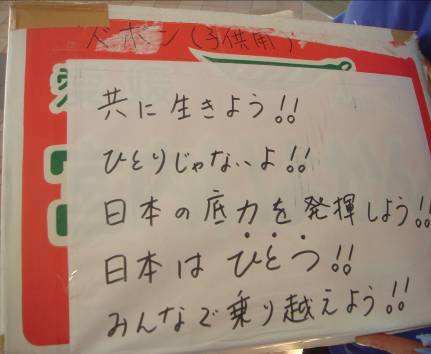 ズボン(子供用)
共に生きよう!!
ひとりじゃないよ!!
日本の底力を発揮しよう!!
日本はひとつ!!
みんなで乗り越えよう!!